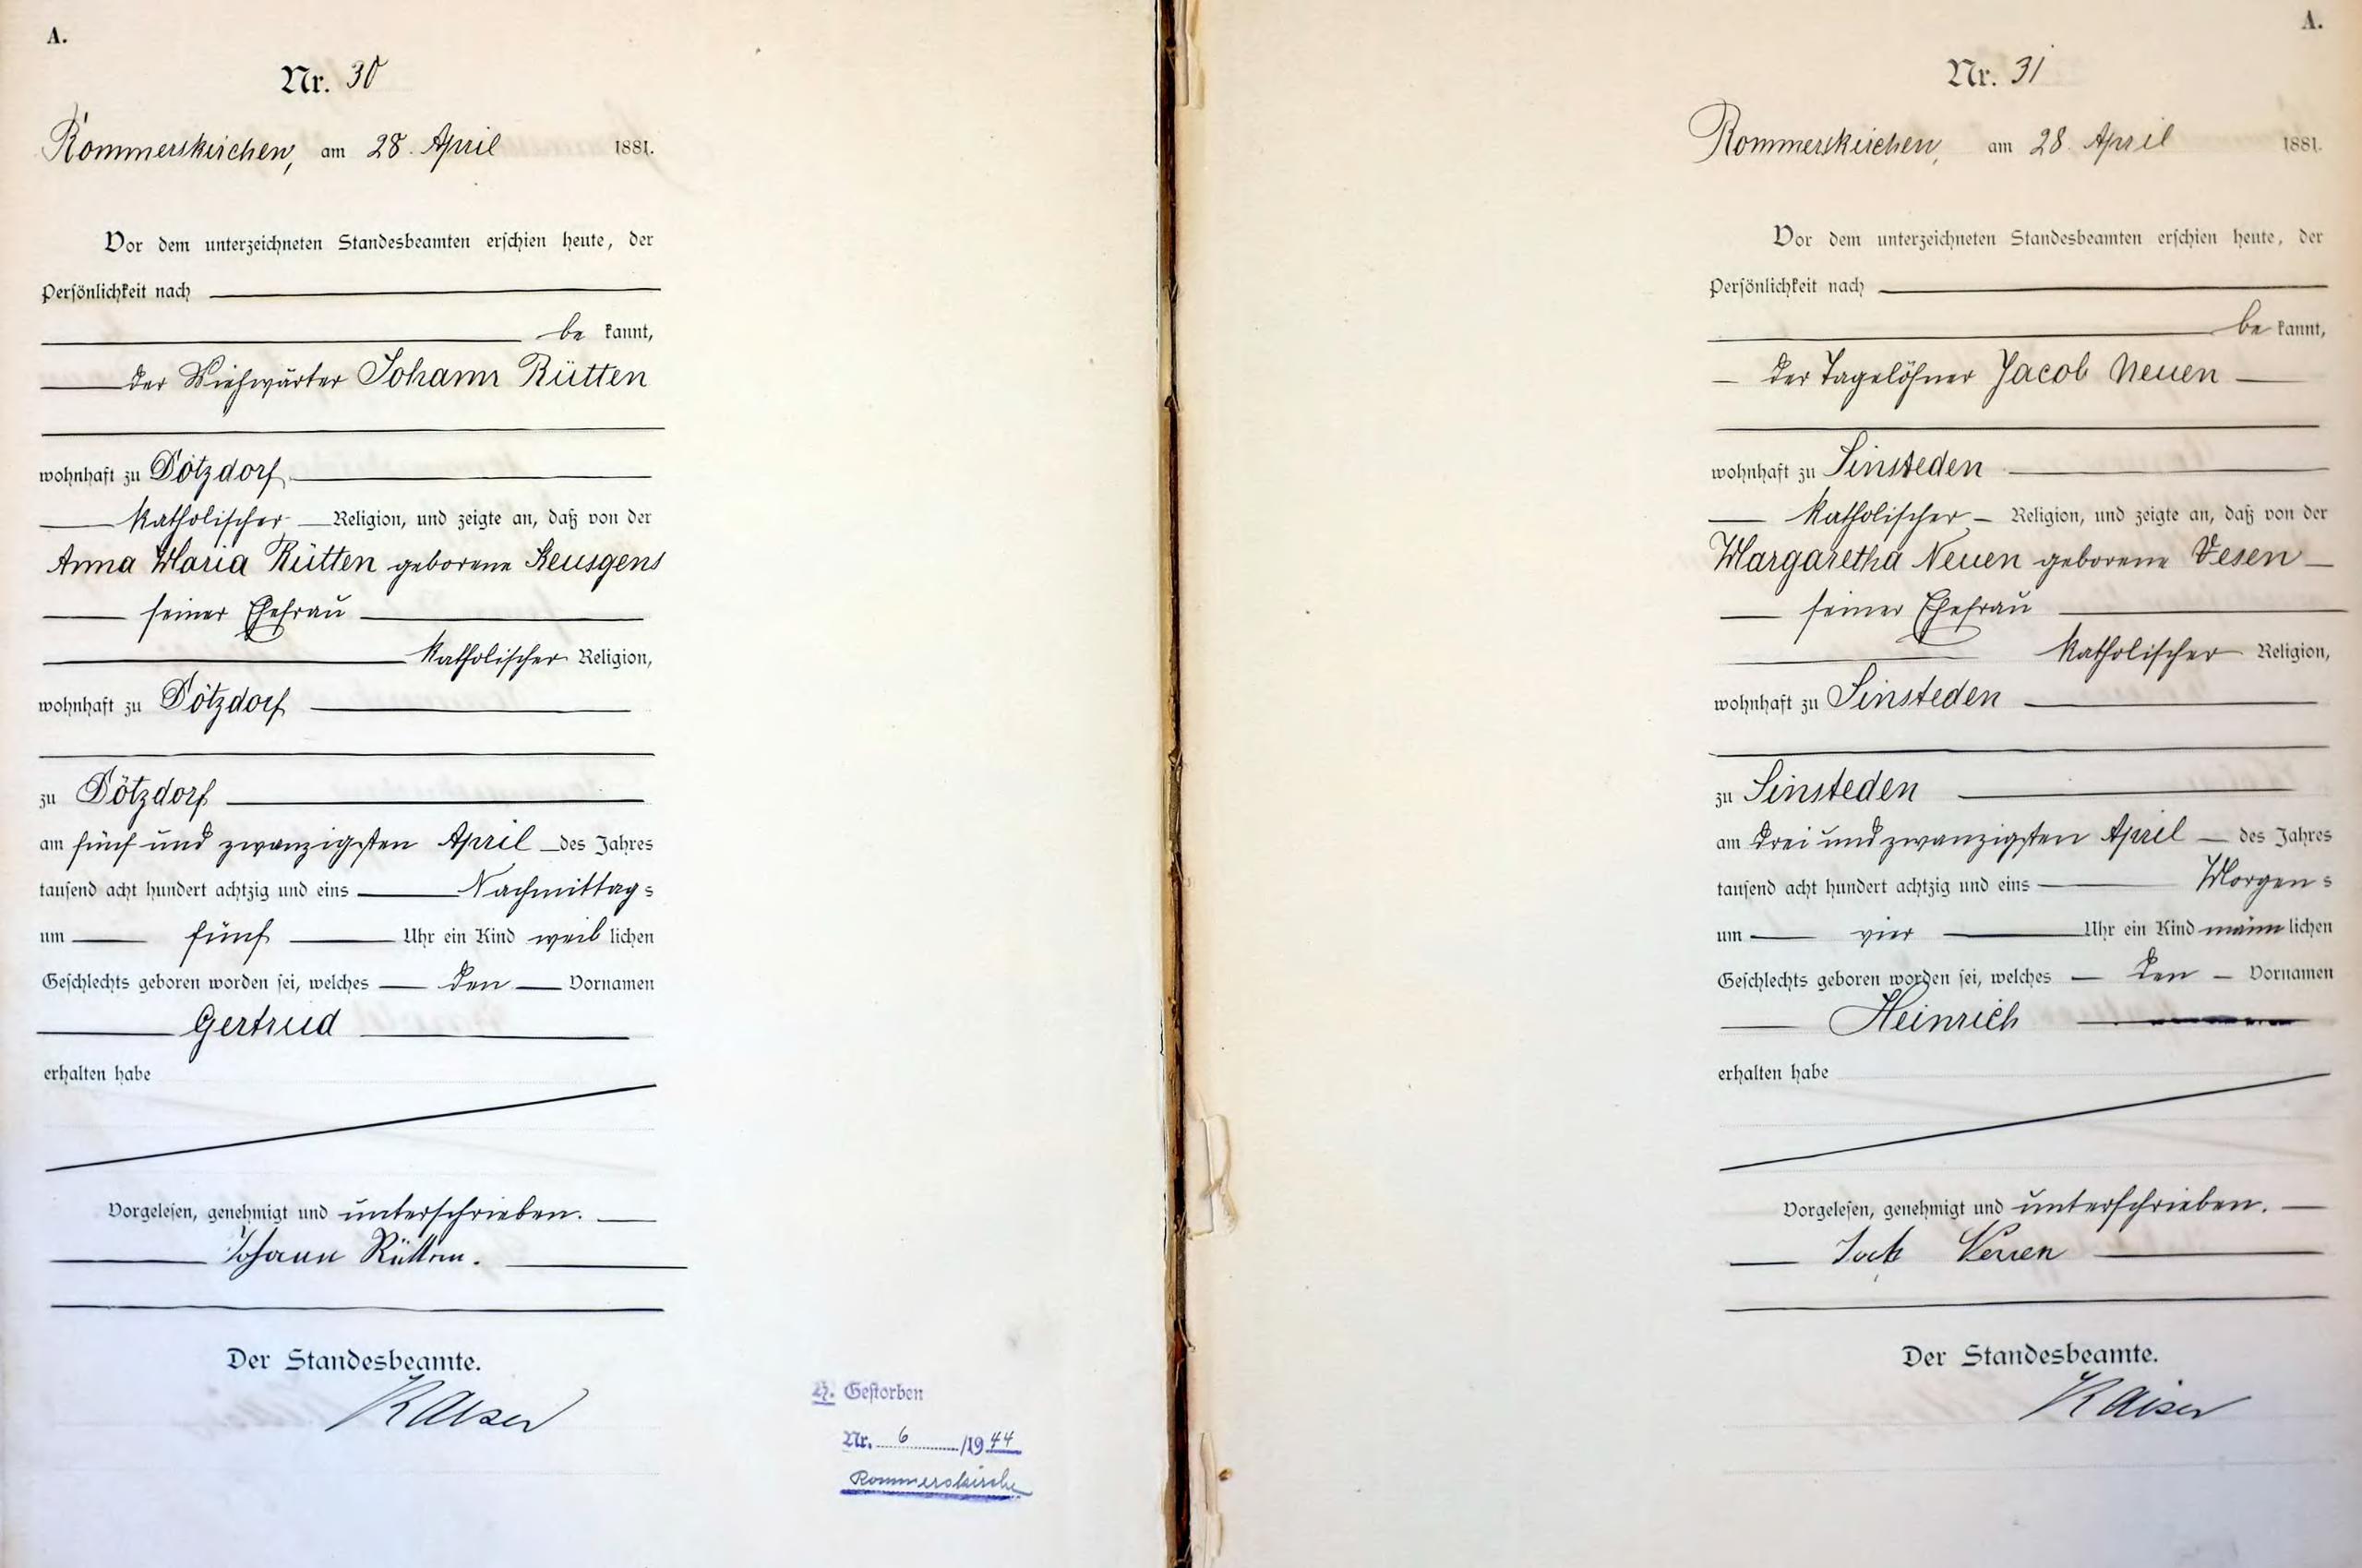 A.
Nr. 30
Rommerskirchen, am 28. April 1881.
Vor dem unterzeichneten Standesbeamten erschien heute, der
Persönlichkeit nach
be kannt,
der Viehwärter Johann Rütten
wohnhaft zu Pötzdorf
katholischer Religion, und zeigte an, daß von der
Anna Maria Rütten geborene Keusgens
seiner Ehefrau
katholischer Religion,
wohnhaft zu Pötzdorf
zu Pötzdorf
am fünf und zwanzigsten April des Jahres
tausend acht hundert achtzig und eins Nachmittags
um fünf Uhr ein Kind weiblichen
Geschlechts geboren worden sei, welches den Vornamen
Gertrud
erhalten habe
Vorgelesen, genehmigt und unterschrieben.
Johann Rütten.
Der Standesbeamte.
Kaiser
H. Gestorben
Nr. 6 /1944
Rommerskirchen
A.
Nr. 31
Rommerskirchen, am 28. April 1881.
Vor dem unterzeichneten Standesbeamten erschien heute, der
Persönlichkeit nach
be kannt,
der Tagelöhner Jacob Neuen
wohnhaft zu Sinsteden
katholischer Religion, und zeigte an, daß von der
Margaretha Neuen geborene Vesen
seiner Ehefrau
katholischer Religion,
wohnhaft zu Sinsteden
zu Sinsteden
am drei und zwanzigsten April des Jahres
tausend acht hundert achtzig und eins Morgens
um vier Uhr ein Kind männlichen
Geschlechts geboren worden sei, welches den Vornamen
Heinrich
erhalten habe
Vorgelesen, genehmigt und unterschrieben.
Jack Neuen
Der Standesbeamte.
Kaiser